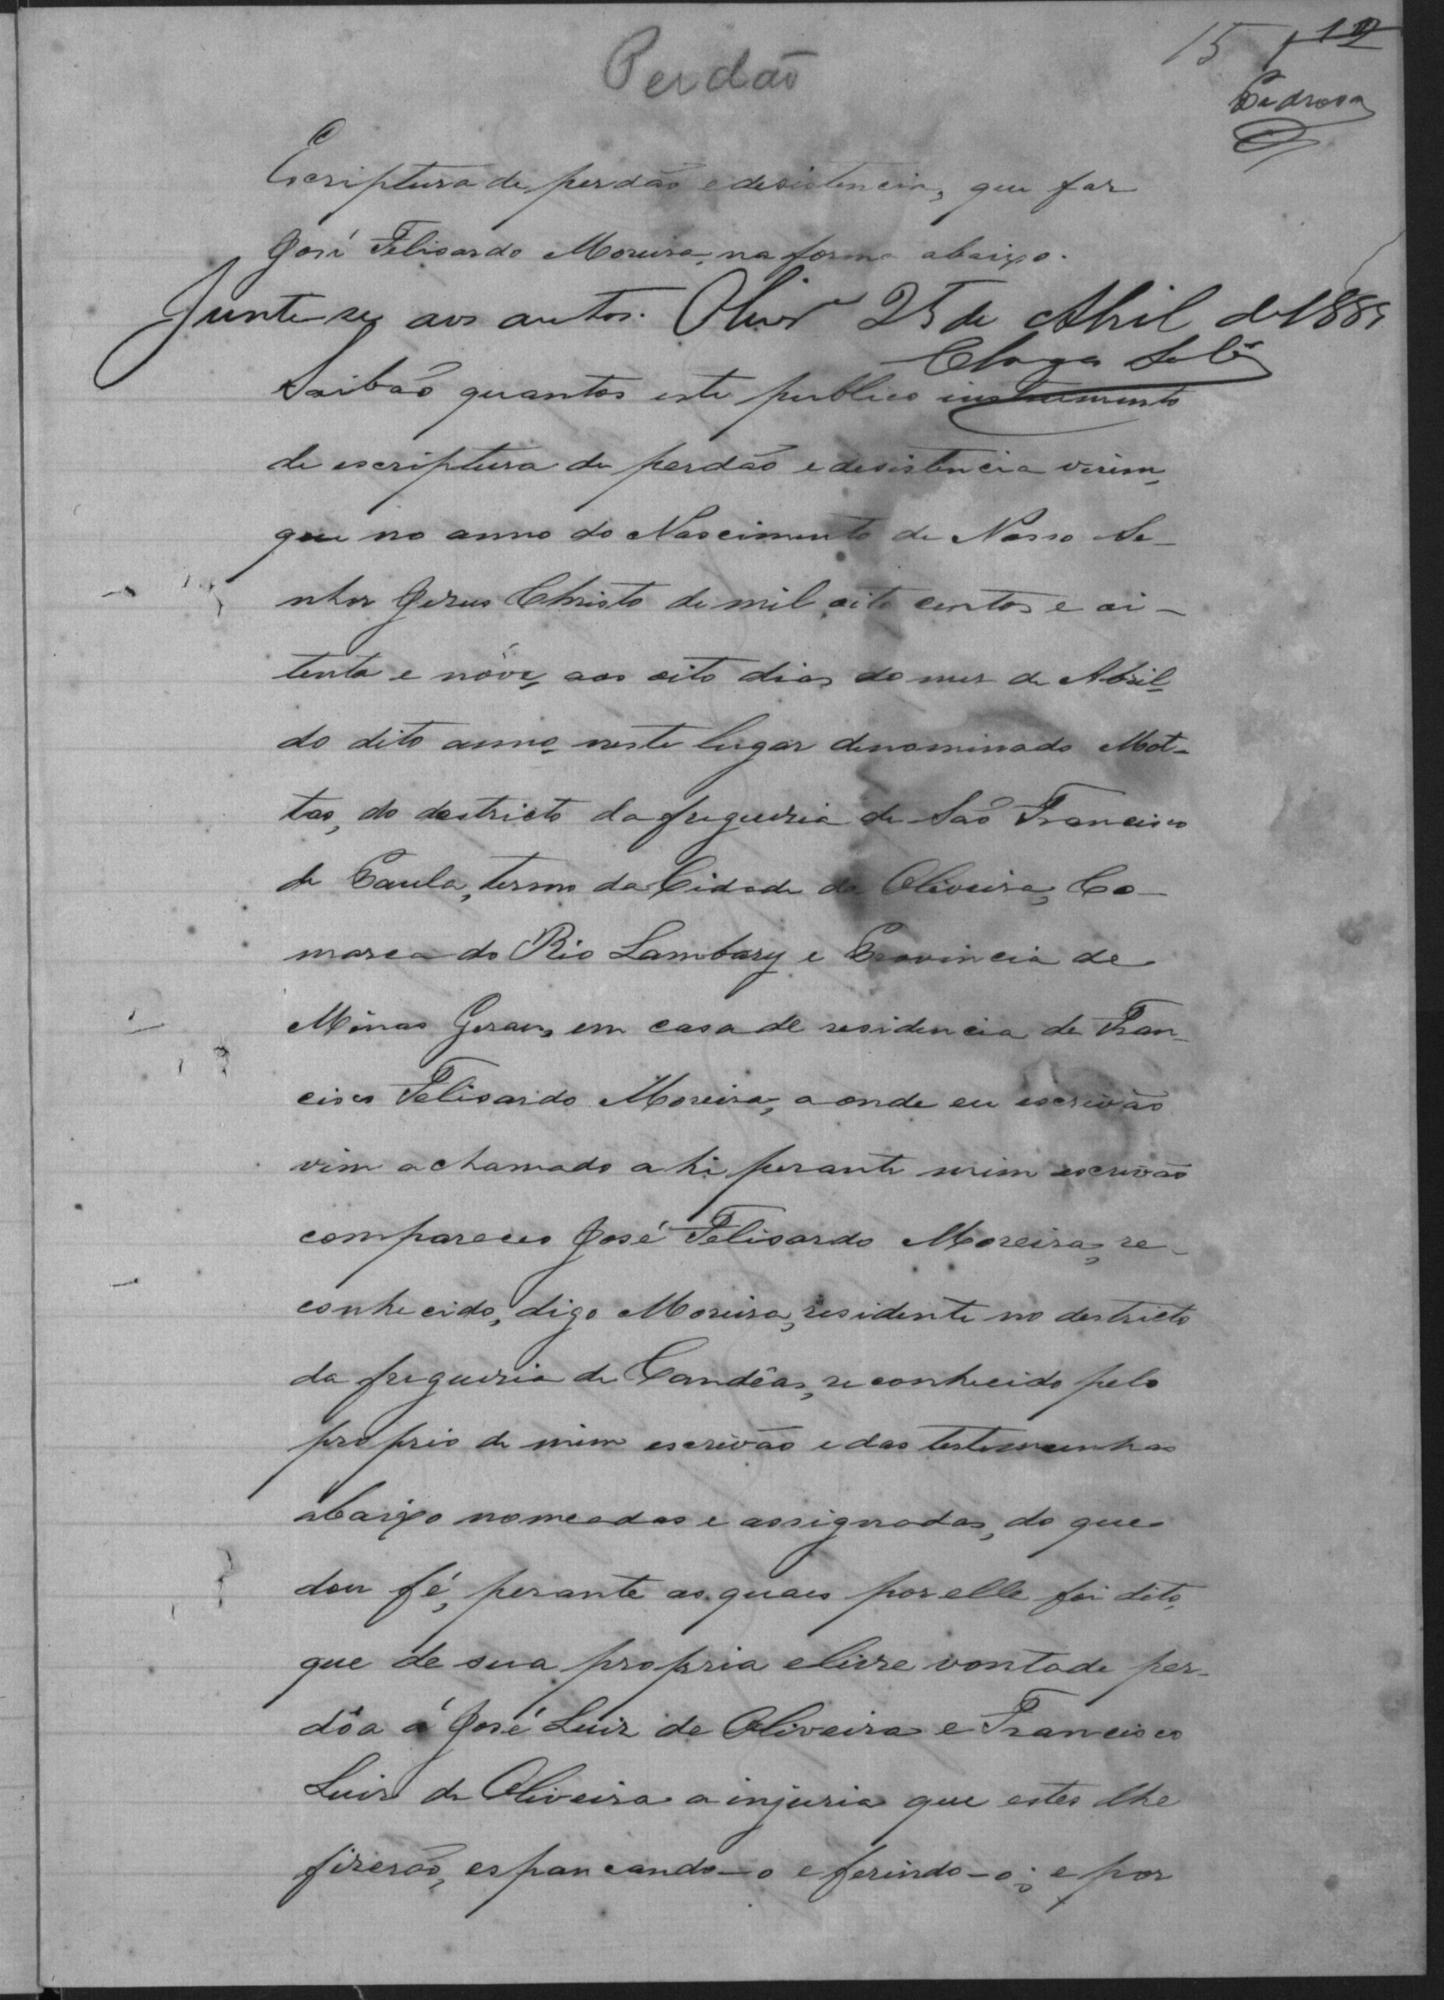 Perdão
15
Pedrosa
Escriptura de perdão e desistencia, que faz
José Felisardo Moreira, na forma abaixo.
Junte-se aos autos. Olivrª 25 de Abril de 1889
Saibão quantos este publico instrumento
de escriptura de perdão e desistencia virem,
que no anno do Nascimento de Nosso Se-
nhor Jesus Christo de mil oito centos e oi-
tenta e nóve, aos oito dias do mes de Abril
do dito anno, neste lugar denominado Mot-
tas, do destricto da freguesia de São Francisco
de Paula, termo da Cidade de Oliveira, Co-
marca do Rio Lambary e Provincia de
Minas Geraes, em casa de residencia de Fran-
cisco Felisardo Moreira, a onde eu escrivão
vim a chamado a hi perante mim escrivão
compareceo José Felisardo Moreira, re-
conhecido, digo Moreira, residente no destricto
da freguesia de Candêas, reconhecido pelo
proprio de mim escrivão e das testemunhas
abaixo nomeadas e assignadas, do que
dou fé, perante as quaes por elle foi dito,
que de sua propria e livre vontade per-
dôa á José Luiz de Oliveira e Francisco
Luiz de Oliveira a injuria que estes lhe
fizerão, espancando-o e ferindo-o; e por